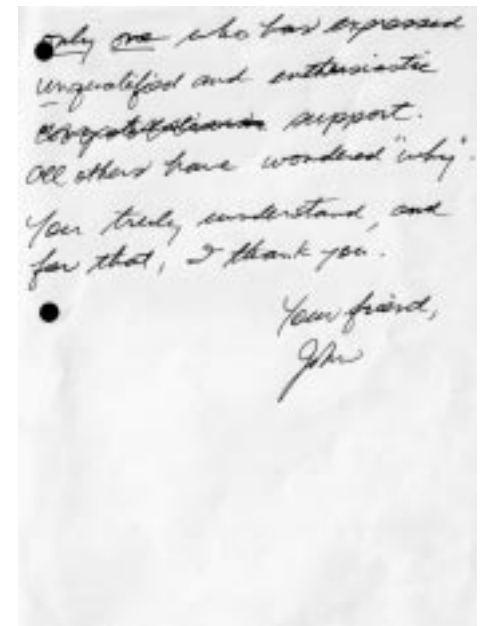 only one who has expressed
unqualified and enthusiastic
congratulations support.
All others have wondered "why".
You truly understand, and
for that, I thank you.
Your friend,
John